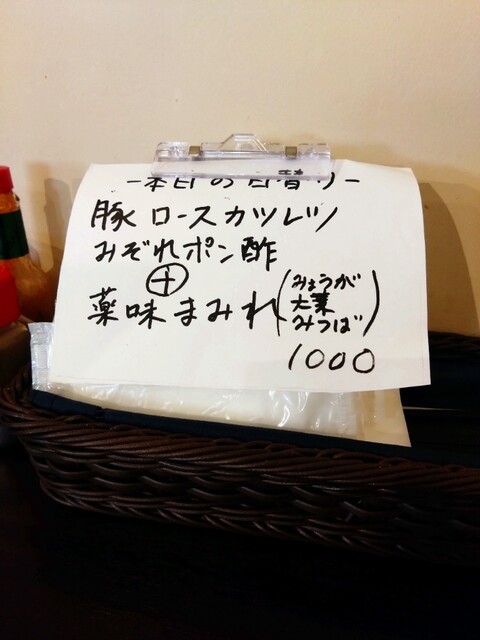 ー本日の日替りー
豚ロースカツレツ
みぞれポン酢
＋
薬味まみれ(みょうが
大葉
みつば)
1000